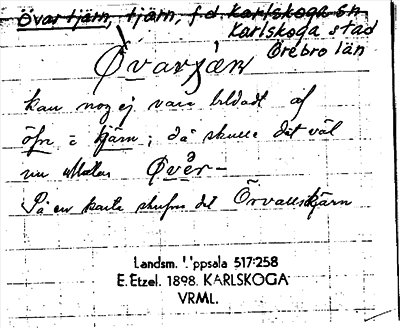 Övartjärn, tjärn, f.d. Karlskoga sn
Karlskoga stad
Örebro län
Øvarjæn
kan nog ej vara bildadt af
öfre = tjärn; då skulle det väl
nu uttalas Øvėr-
På en karta skrifves det Örvallstjärn
Landsm. Uppsala 517:258
E. Etzel. 1898. KARLSKOGA
VRML.